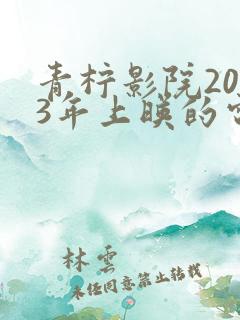 青柠影院20
3年上映的
林云
未经同意禁止转载